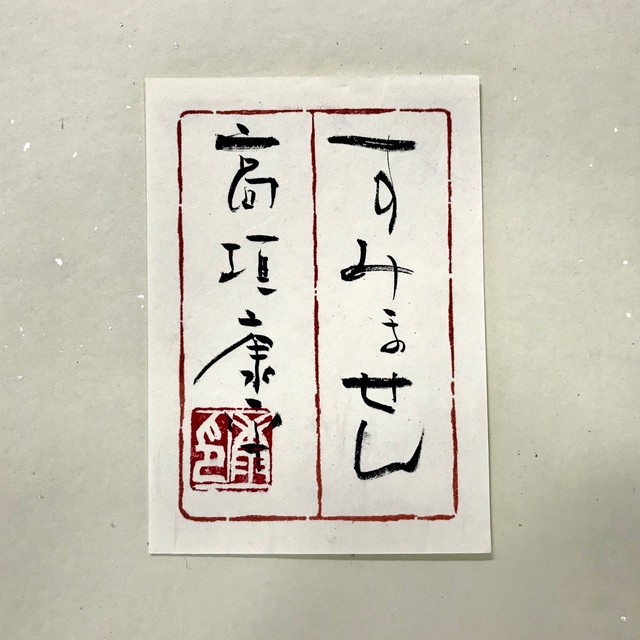 すみません
高垣康平